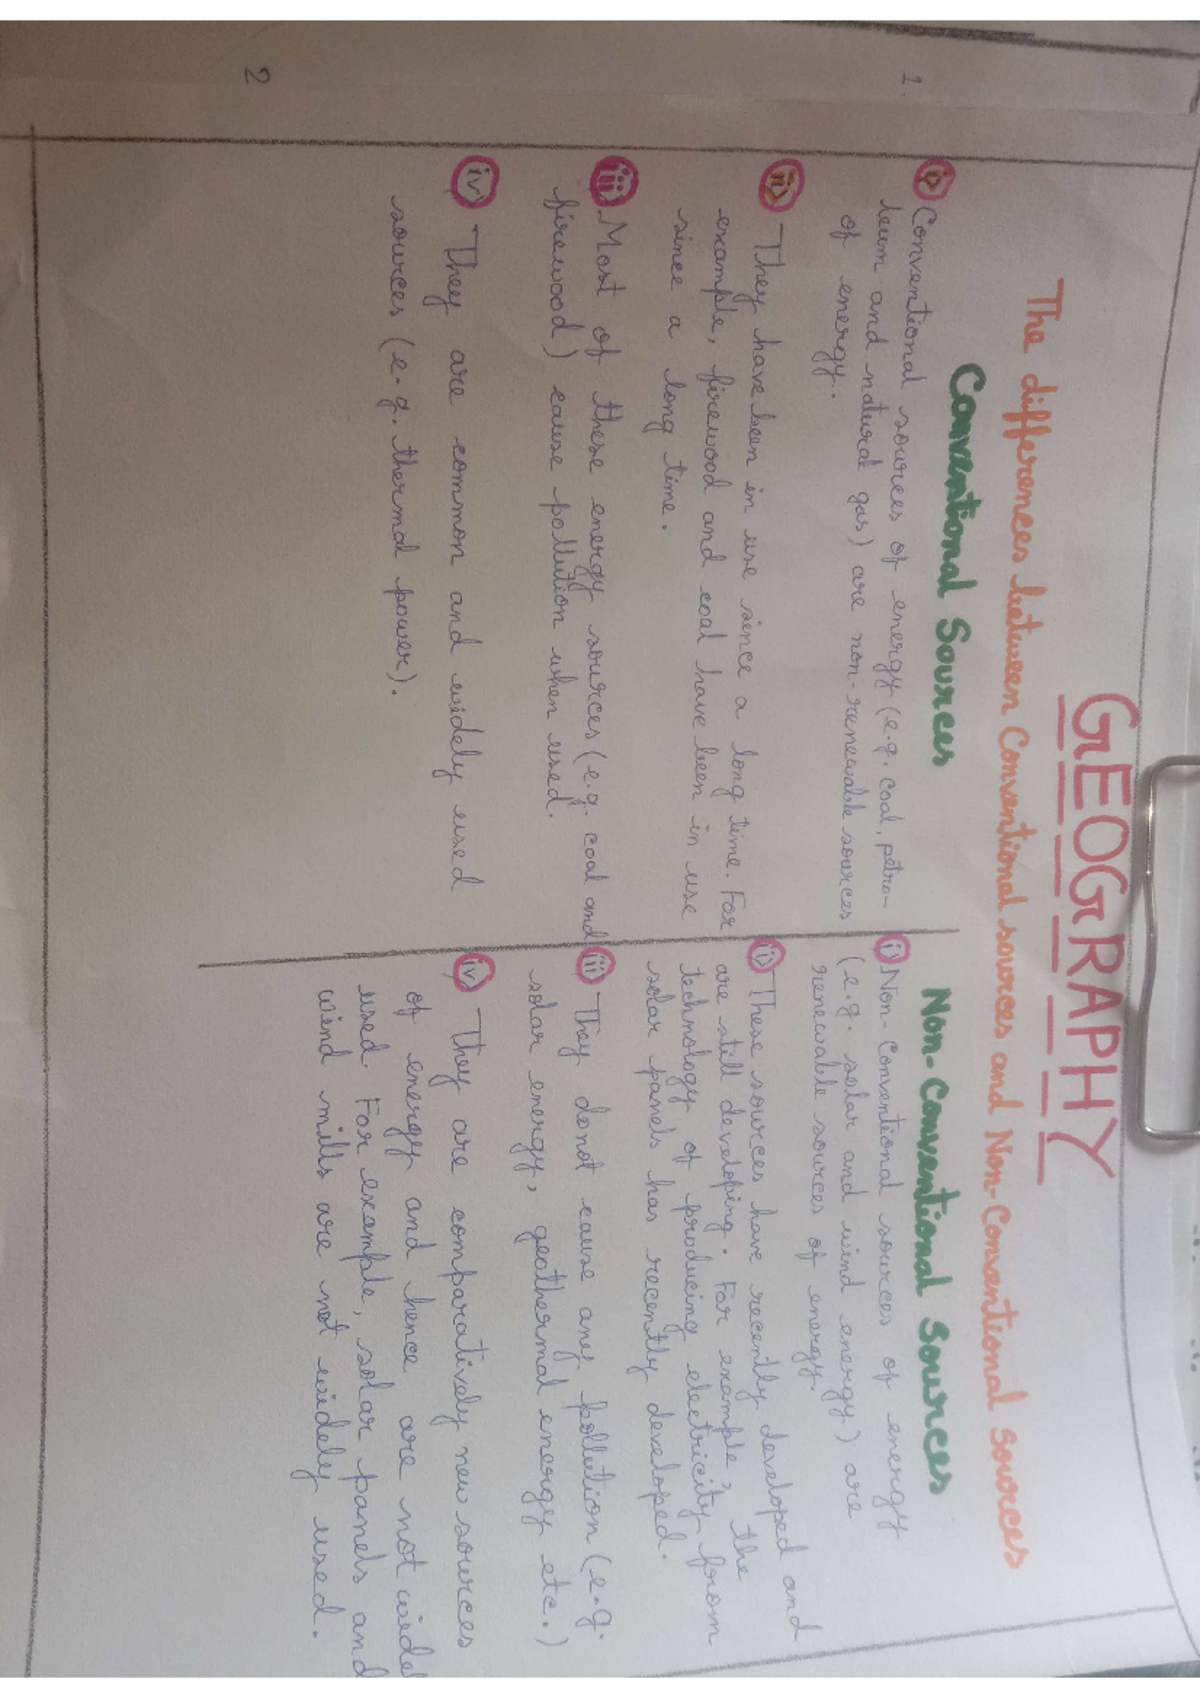 GEOGRAPHY
The differences between Conventional sources and Non-Conventional sources
1.
Conventional Sources
i) Conventional sources of energy (e.g. coal, petro-
leum and natural gas) are non-renewable sources
of energy.
ii) They have been in use since a long time. For
example, firewood and coal have been in use
since a long time.
iii) Most of these energy sources (e.g. coal and
firewood) cause pollution when used.
iv) They are common and widely used
sources (e.g. thermal power).
Non-Conventional Sources
i) Non-Conventional sources of energy
(e.g. solar and wind energy) are
renewable sources of energy.
ii) These sources have recently developed and
are still developing. For example, the
technology of producing electricity from
solar panels has recently developed.
iii) They donot cause any pollution (e.g.
solar energy, geothermal energy etc.)
iv) They are comparatively new sources
of energy and hence are not wide
used. For example, solar panels and
wind mills are not widely used.
2